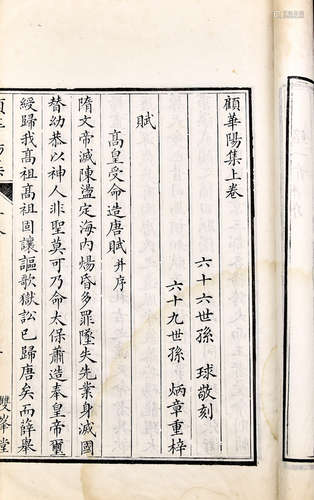 顧華陽集上卷
六十六世孫 球敬刻
六十九世孫 炳章重梓
賦
高皇受命造唐賦并序
隋文帝滅陳盪定海内煬昏多罪墜失先業身滅國
替幼恭以神人非聖莫可乃命太保蕭造奉皇帝璽
綬歸我高祖高祖固讓謳歌獄訟已歸唐矣而薛舉
雙峯堂